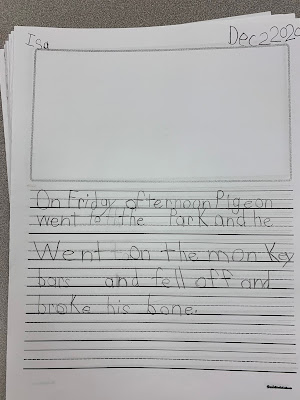 Isa
Dec 2 2020
On Friday afternoon Pigeon
went to the Park and he
Went on the monkey
bars and fell off and
broke his bone.